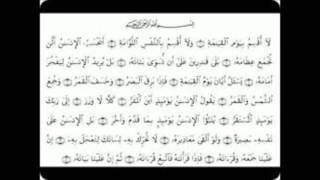 بِسْمِ ٱللَّهِ ٱلرَّحْمَٰنِ ٱلرَّحِيمِ
لَآ أُقْسِمُ بِيَوْمِ ٱلْقِيَٰمَةِ ۝ وَلَآ أُقْسِمُ بِٱلنَّفْسِ ٱللَّوَّامَةِ ۝ أَيَحْسَبُ ٱلْإِنسَٰنُ أَلَّن
نَّجْمَعَ عِظَامَهُۥ ۝ بَلَىٰ قَٰدِرِينَ عَلَىٰٓ أَن نُّسَوِّىَ بَنَانَهُۥ ۝ بَلْ يُرِيدُ ٱلْإِنسَٰنُ لِيَفْجُرَ
أَمَامَهُۥ ۝ يَسْـَٔلُ أَيَّانَ يَوْمُ ٱلْقِيَٰمَةِ ۝ فَإِذَا بَرِقَ ٱلْبَصَرُ ۝ وَخَسَفَ ٱلْقَمَرُ ۝ وَجُمِعَ
ٱلشَّمْسُ وَٱلْقَمَرُ ۝ يَقُولُ ٱلْإِنسَٰنُ يَوْمَئِذٍ أَيْنَ ٱلْمَفَرُّ ۝ كَلَّا لَا وَزَرَ ۝ إِلَىٰ رَبِّكَ
يَوْمَئِذٍ ٱلْمُسْتَقَرُّ ۝ يُنَبَّؤُا۟ ٱلْإِنسَٰنُ يَوْمَئِذٍۭ بِمَا قَدَّمَ وَأَخَّرَ ۝ بَلِ ٱلْإِنسَٰنُ عَلَىٰ
نَفْسِهِۦ بَصِيرَةٌ ۝ وَلَوْ أَلْقَىٰ مَعَاذِيرَهُۥ ۝ لَا تُحَرِّكْ بِهِۦ لِسَانَكَ لِتَعْجَلَ بِهِۦٓ ۝ إِنَّ
عَلَيْنَا جَمْعَهُۥ وَقُرْءَانَهُۥ ۝ فَإِذَا قَرَأْنَٰهُ فَٱتَّبِعْ قُرْءَانَهُۥ ۝ ثُمَّ إِنَّ عَلَيْنَا بَيَانَهُۥ ۝